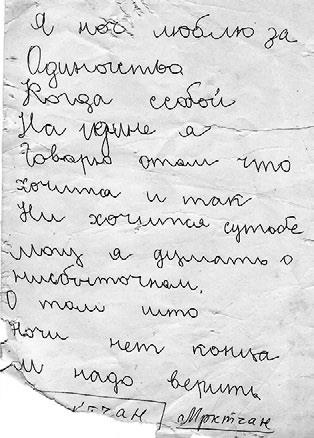 Я ноч люблю за
Одиночства
Когда ссобой
На едине я
Говорю отом что
хочитса и так
Ни хочится сутобе
могу я думать о
нисбыточнам,
О том што
ночи нет конца
и надо верить
ктчан Мрктчан